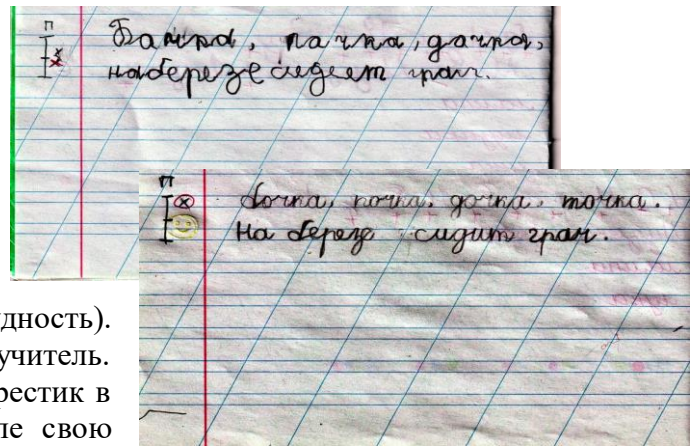 П
Бочка, почка, дочка,
на березе сидит грач.
П
бочка, почка, дочка, точка.
На березе сидит грач.
удность).
учитель.
рестик в
ле свою